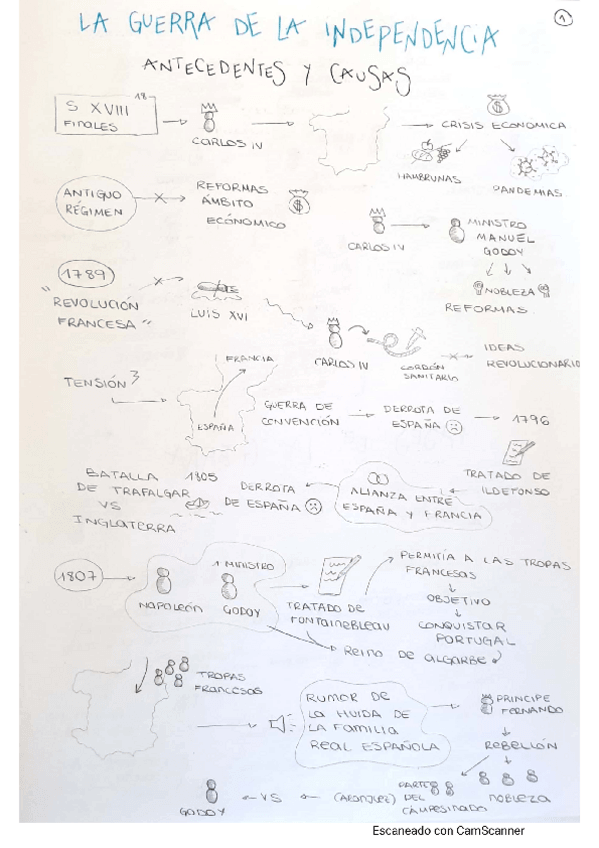 1
LA GUERRA DE LA INDEPENDENCIA
ANTECEDENTES Y CAUSAS
18
S XVIII
FINALES
CARLOS IV
CRISIS ECONOMICA
HAMBRUNAS
PANDEMIAS
ANTIGUO
RÉGIMEN
REFORMAS
ÁMBITO
ECÓNOMICO
$
CARLOS IV
MINISTRO
MANUEL
GODOY
NOBLEZA
REFORMAS
1789
"REVOLUCIÓN
FRANCESA"
LUIS XVI
CARLOS IV
CORDÓN
SANITARIO
IDEAS
REVOLUCIONARIO
TENSIÓN
FRANCIA
ESPAÑA
GUERRA DE
CONVENCIÓN
DERROTA DE
ESPAÑA
1796
TRATADO DE
ILDEFONSO
ALIANZA ENTRE
ESPAÑA Y FRANCIA
DERROTA
DE ESPAÑA
BATALLA 1805
DE TRAFALGAR
VS
INGLATERRA
1807
NAPOLEÓN
1 MINISTRO
GODOY
TRATADO DE
FONTAINEBLEAU
PERMITIA A LAS TROPAS
FRANCESAS
OBJETIVO
CONQUISTAR
PORTUGAL
REINO DE ALGARBE
TROPAS
FRANCESAS
RUMOR DE
LA HUIDA DE
LA FAMILIA
REAL ESPAÑOLA
PRINCIPE
FERNANDO
REBELLÓN
NOBLEZA
PARTE
DEL
CAMPESINADO
(ARANJUEZ)
VS
GODOY
Escaneado con CamScanner